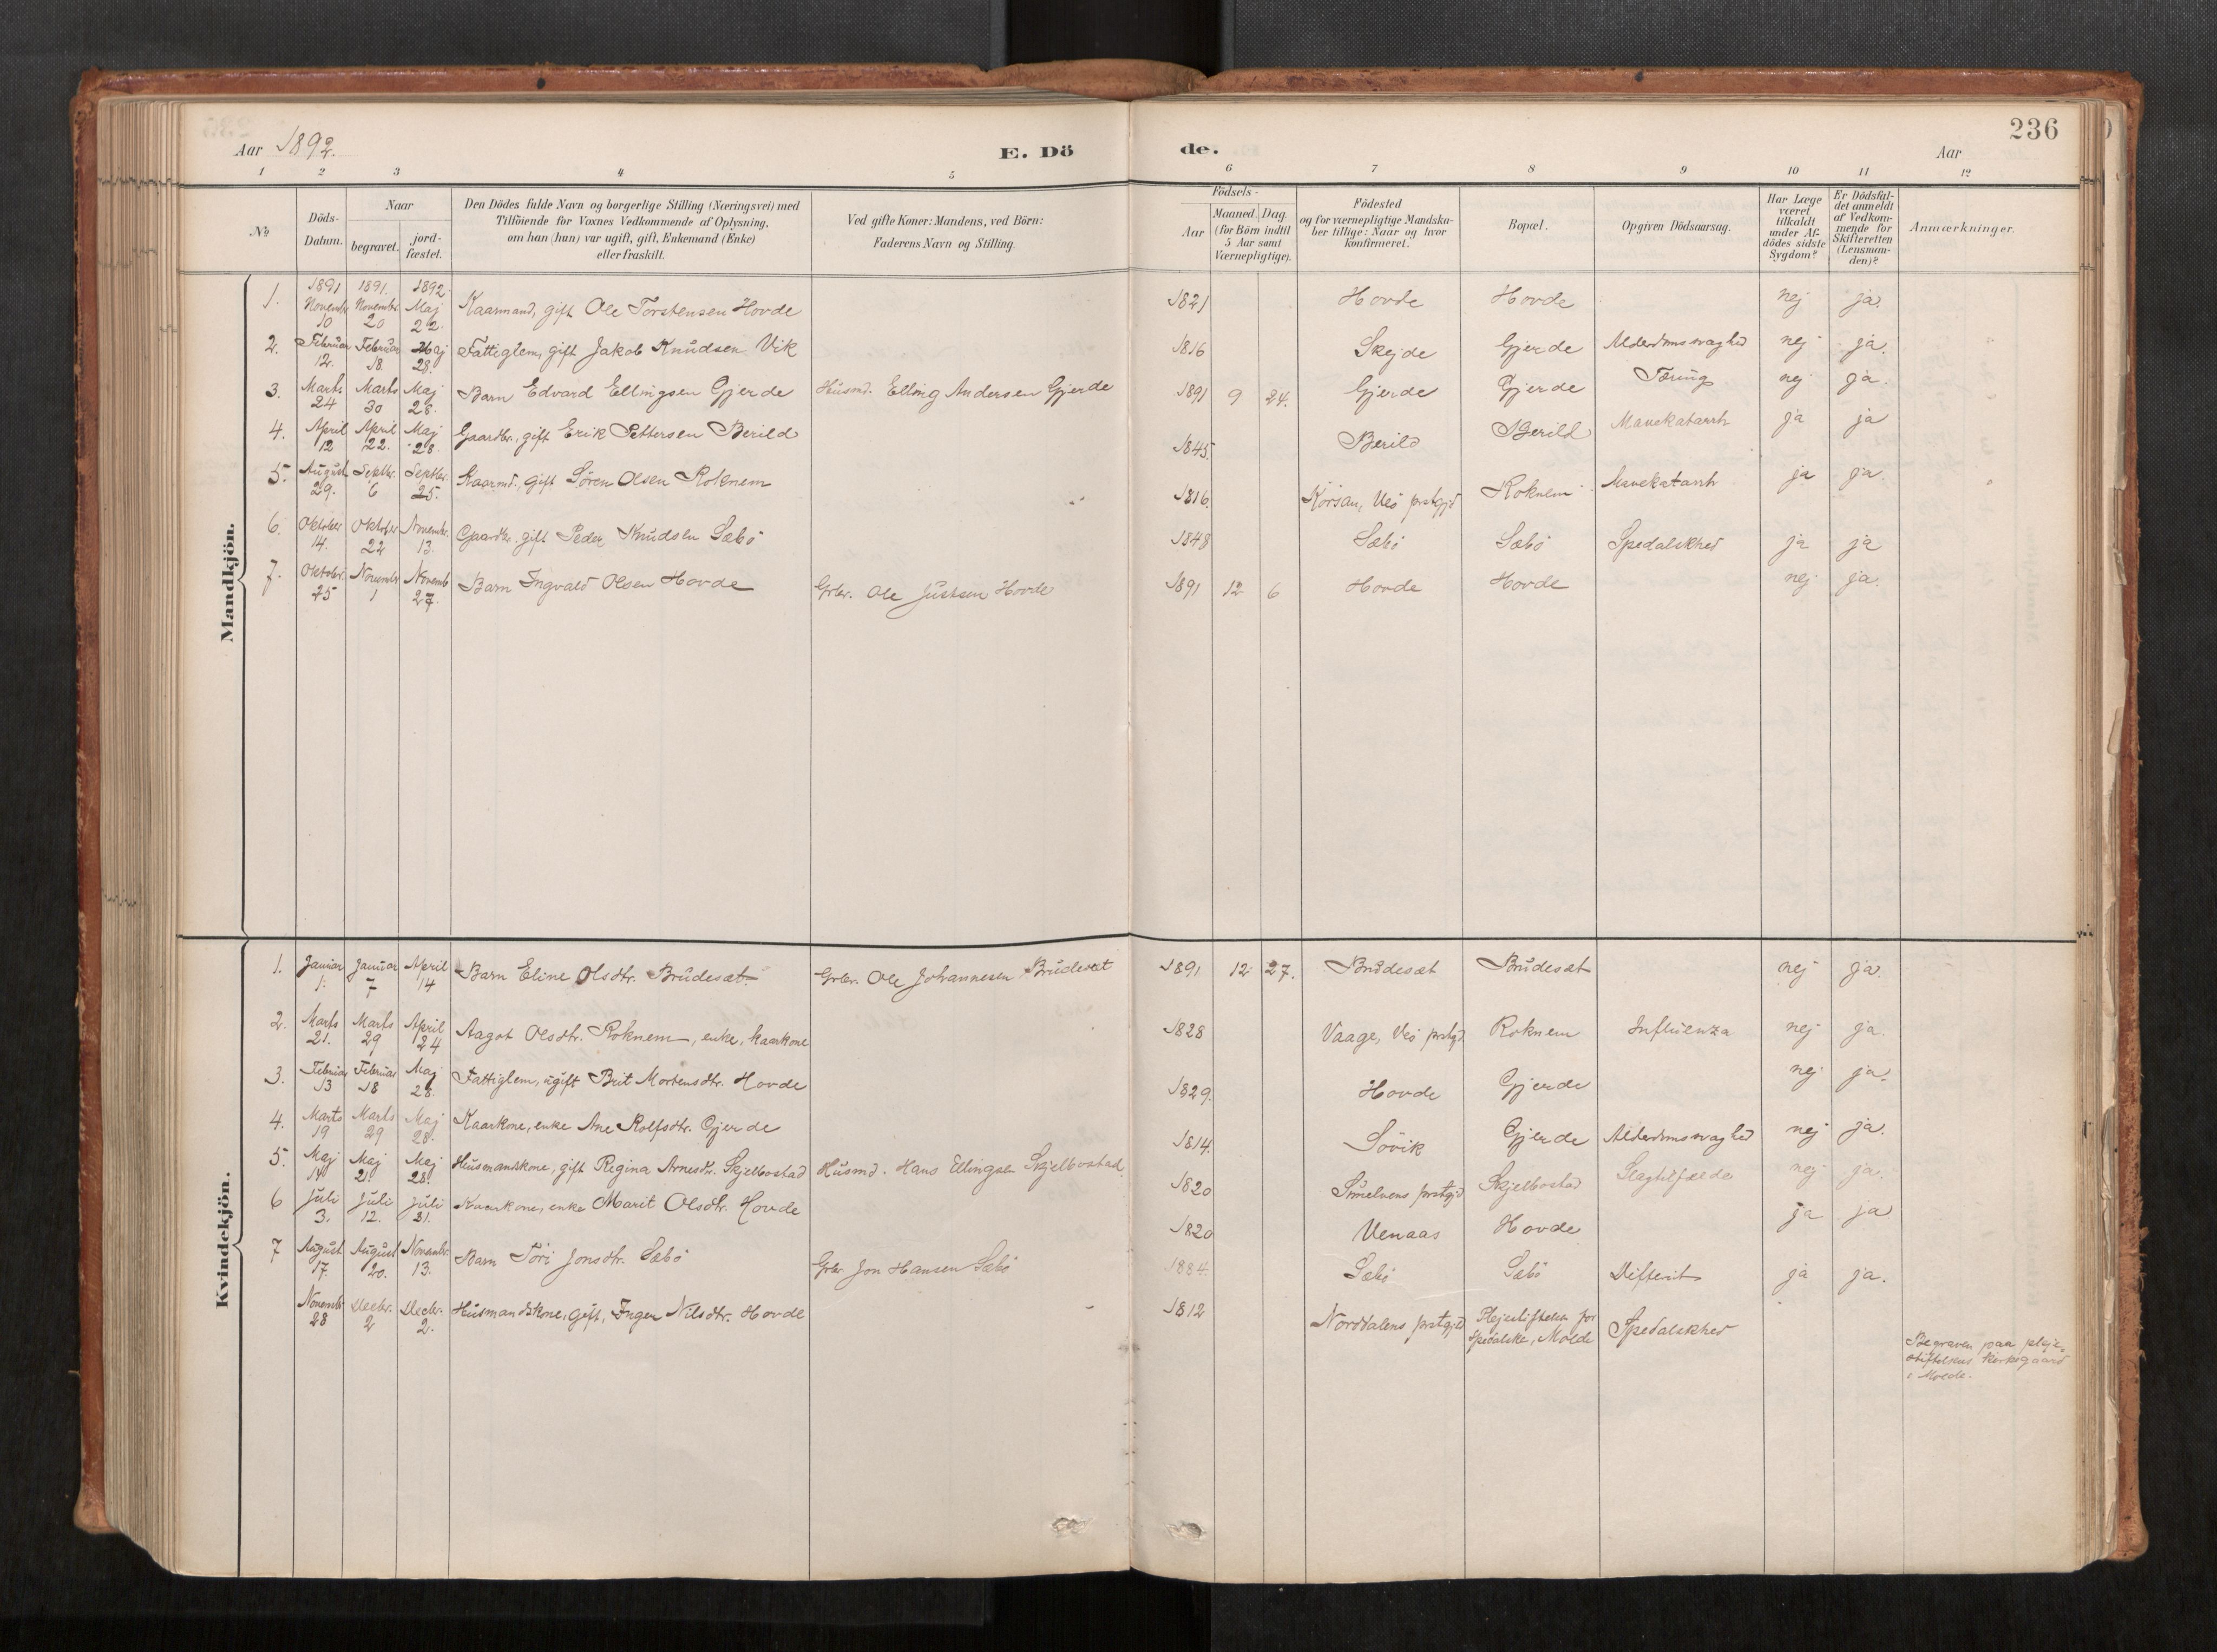 236
Aar 1892. E. Dö de. Aar
1 2 3 4 5 6 7 8 9 10 11 12
No
Döds-Datum.
Naar
begravet.
jord-fæstet.
Den Dödes fulde Navn og borgerlige Stilling (Næringsvei) med
Tilföiende for Voxnes Vedkommende af Oplysning,
om han (hun) var ugift, gift, Enkemand (Enke)
eller fraskilt.
Ved gifte Koner: Mandens, ved Börn:
Faderens Navn og Stilling.
Födsels-
Aar
Maaned. Dag.
(for Börn indtil
5 Aar samt
Værnepligtige).
Födested
og for værnepligtige Mandska-
ber tillige: Naar og hvor
konfirmeret.
Bopæl.
Opgiven Dödsaarsag.
Har Læge
været
tilkaldt
under Af-
dödes sidste
Sygdom?
Er Dödsfal-
det anmeldt
af Vedkom-
mende for
Skifteretten
(Lensman-
den)?
Anmærkninger.
Mandkjön.
1. 1891 Novembr 10 1891. Novembr. 20 1892 Maj 22. Kaarmand, gift Ole Torstensen Hovde 1821 Hovde Hovde nej ja.
2. Februar 12. Februar 18. Maj 28. Fattiglem, gift Jakob Knudsen Vik 1816 Skejde Gjerde Alderdomssvaghed nej ja.
3. Marts 24 Marts 30 Maj 28. Barn Edvard Ellingsen Gjerde Husmd. Elling Andersen Gjerde 1891 9 24. Gjerde Gjerde Tæring nej ja.
4. April 12 April 22. Maj 28. Gaardbr., gift Erik Pettersen Berild 1845. Berild Berild Mavekatarrh ja ja
5. August 29. Septbr. 6 Septbr. 25. Kaarmd., gift Sören Olsen Roknem 1816. Korsan, Veö prstgjd Roknem Mavekatarrh ja ja.
6. Oktober 14. Oktober 22 Novembr. 13. Gaardbr. gift Peder Knudsen Sæbö 1848 Sæbö Sæbö Spedalskhed ja ja
7. Oktobr. 25 Novembr 1 Novemb 27. Barn Ingvald Olsen Hovde Grbr. Ole Justsen Hovde 1891 12 6 Hovde Hovde nej ja.
Kvindekjön.
1. Januar 1. Januar 7 April 14 Barn Eline Olsdtr. Brudesæt Grbr. Ole Johannesen Brudesæt 1891 12 27. Brudesæt Brudesæt nej ja.
2. Marts 21. Marts 29 April 24 Aagot Olsdtr. Roknem, enke, kaarkone 1828 Vaage, Veö prstgd. Roknem Influenza nej ja.
3. Februar 13 Februar 18 Maj 28. Fattiglem, ugift Brit Mortensdtr. Hovde 1829. Hovde Gjerde nej ja.
4. Marts 19 Marts 29 Maj 28. Kaarkone, enke Ane Rolfsdtr. Gjerde 1814. Sövik Gjerde Alderdomssvaghed nej ja.
5. Maj 14 Maj 21. Maj 28. Husmandskone, gift Regina Arnesdtr. Skjelbostad Husmd. Hans Ellingsen Skjelbostad 1820 Sunelvens prstgjd Skjelbostad Slagtilfælde nej ja.
6 Juli 3. Juli 12. Juli 31. Kaarkone, enke Marit Olsdtr. Hovde 1820 Venaas Hovde ja ja
7 August 17. August 20. Novembr. 13. Barn Tori Jonsdtr. Sæbö Grbr. Jon Hansen Sæbö 1884. Sæbö Sæbö Difterit ja ja.
Novembr 28 Decbr. 2 Decbr. 2. Husmandskone, gift, Inger Nilsdtr. Hovde 1812 Norddalens prstgjd Plejestiftelsen for Spedalske, Molde Spedalskhed
Begraven paa pleje-
stiftelsens kirkegaard
i Molde.